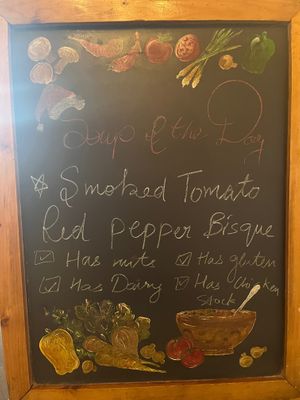 Soup of the Day
☆ Smoked Tomato
Red Pepper Bisque
☑ Has nuts ☑ Has gluten
☑ Has Dairy ☑ Has Chicken
Stock